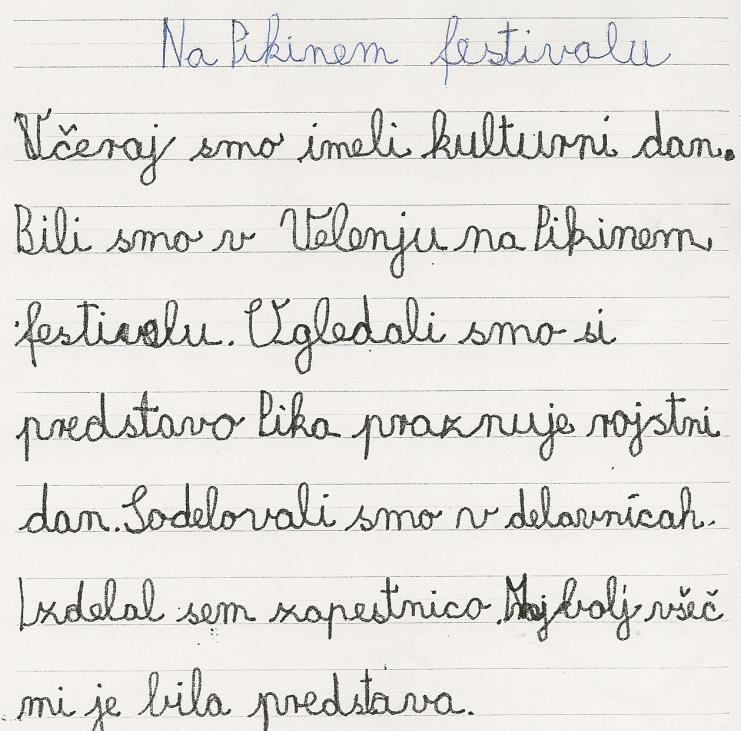 Na Pikinem festivalu
Včeraj smo imeli kulturni dan.
Bili smo v Velenju na Pikinem
festivalu. Ogledali smo si
predstavo Pika praznuje rojstni
dan. Sodelovali smo v delavnicah.
Izdelal sem zapestnico. Najbolj všeč
mi je bila predstava.